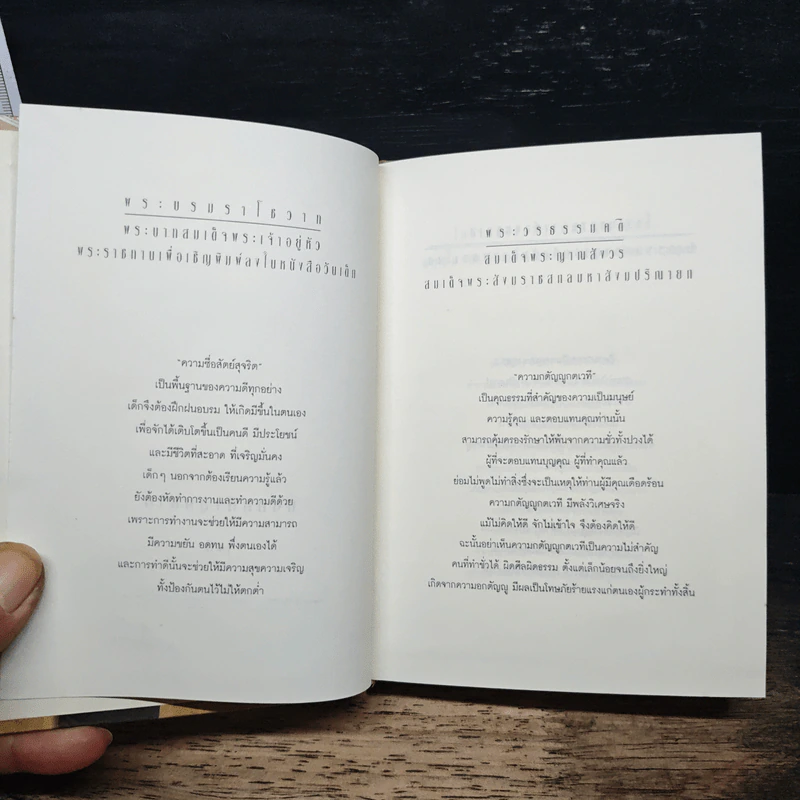 พระบรมราโชวาท
พระบาทสมเด็จพระเจ้าอยู่หัว
พระราชทานเพื่อเชิญพิมพ์ลงในหนังสือวันเด็ก
"ความซื่อสัตย์สุจริต"
เป็นพื้นฐานของความดีทุกอย่าง
เด็กจึงต้องฝึกฝนอบรม ให้เกิดมีขึ้นในตนเอง
เพื่อจักได้เติบโตขึ้นเป็นคนดี มีประโยชน์
และมีชีวิตที่สะอาด ที่เจริญมั่นคง
เด็กๆ นอกจากต้องเรียนความรู้แล้ว
ยังต้องหัดทำการงานและทำความดีด้วย
เพราะการทำงานจะช่วยให้มีความสามารถ
มีความขยัน อดทน พึ่งตนเองได้
และการทำดีนั้นจะช่วยให้มีความสุขความเจริญ
ทั้งป้องกันตนไว้ไม่ให้ตกต่ำ
พระวรธรรมคติ
สมเด็จพระญาณสังวร
สมเด็จพระสังฆราชสกลมหาสังฆปริณายก
"ความกตัญญูกตเวที"
เป็นคุณธรรมที่สำคัญของความเป็นมนุษย์
ความรู้คุณ และตอบแทนคุณท่านนั้น
สามารถคุ้มครองรักษาให้พ้นจากความชั่วทั้งปวงได้
ผู้ที่จะตอบแทนบุญคุณ ผู้ที่ทำคุณแล้ว
ย่อมไม่พูดไม่ทำสิ่งซึ่งจะเป็นเหตุให้ท่านผู้มีคุณเดือดร้อน
ความกตัญญูกตเวที มีพลังวิเศษจริง
แม้ไม่คิดให้ดี จักไม่เข้าใจ จึงต้องคิดให้ดี
ฉะนั้นอย่าเห็นความกตัญญูกตเวทีเป็นความไม่สำคัญ
คนที่ทำชั่วได้ ผิดศีลผิดธรรม ตั้งแต่เล็กน้อยจนถึงยิ่งใหญ่
เกิดจากความอกตัญญู มีผลเป็นโทษภัยร้ายแรงแก่ตนเองผู้กระทำทั้งสิ้น